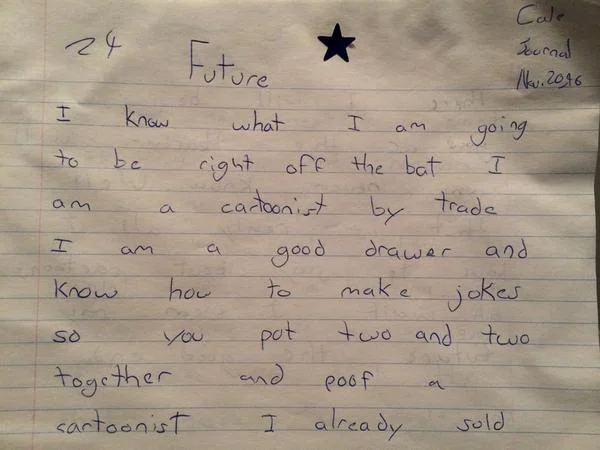 24
Future
Cale
Journal
Nov. 2016
I know what I am going
to be right off the bat I
am a cartoonist by trade
I am a good drawer and
know how to make jokes
so you pot two and two
together and poof a
cartoonist I already sold